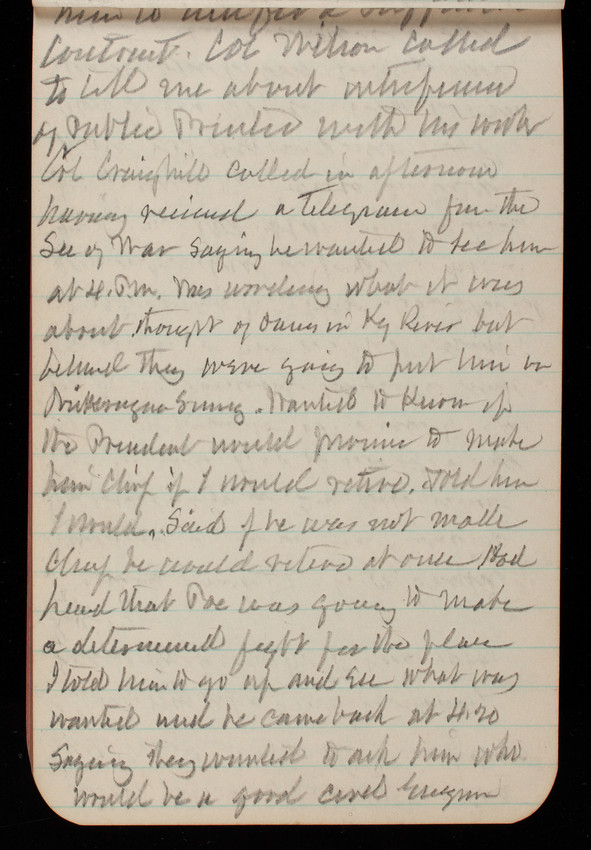 him to
Contract. Col Wilson called
to tell me about interference
of Public Printer with his work
Col Craighill called in afternoon
having received a telegram from the
Sec of War saying he wanted to see him
at 4. P.M. Was wondering what it was
about, thought of dams in Ky River but
believed they were going to put him on
Nicaragua Survey. Wanted to know if
the President would promise to make
him Chief if I would retire. Told him
I would. Said if he was not made
Chief he would retire at once Had
heard that Poe was going to make
a determined fight for the place
I told him to go up and see what was
wanted and he came back at 4.20
Saying they wanted to ask him who
would be a good civil Engineer